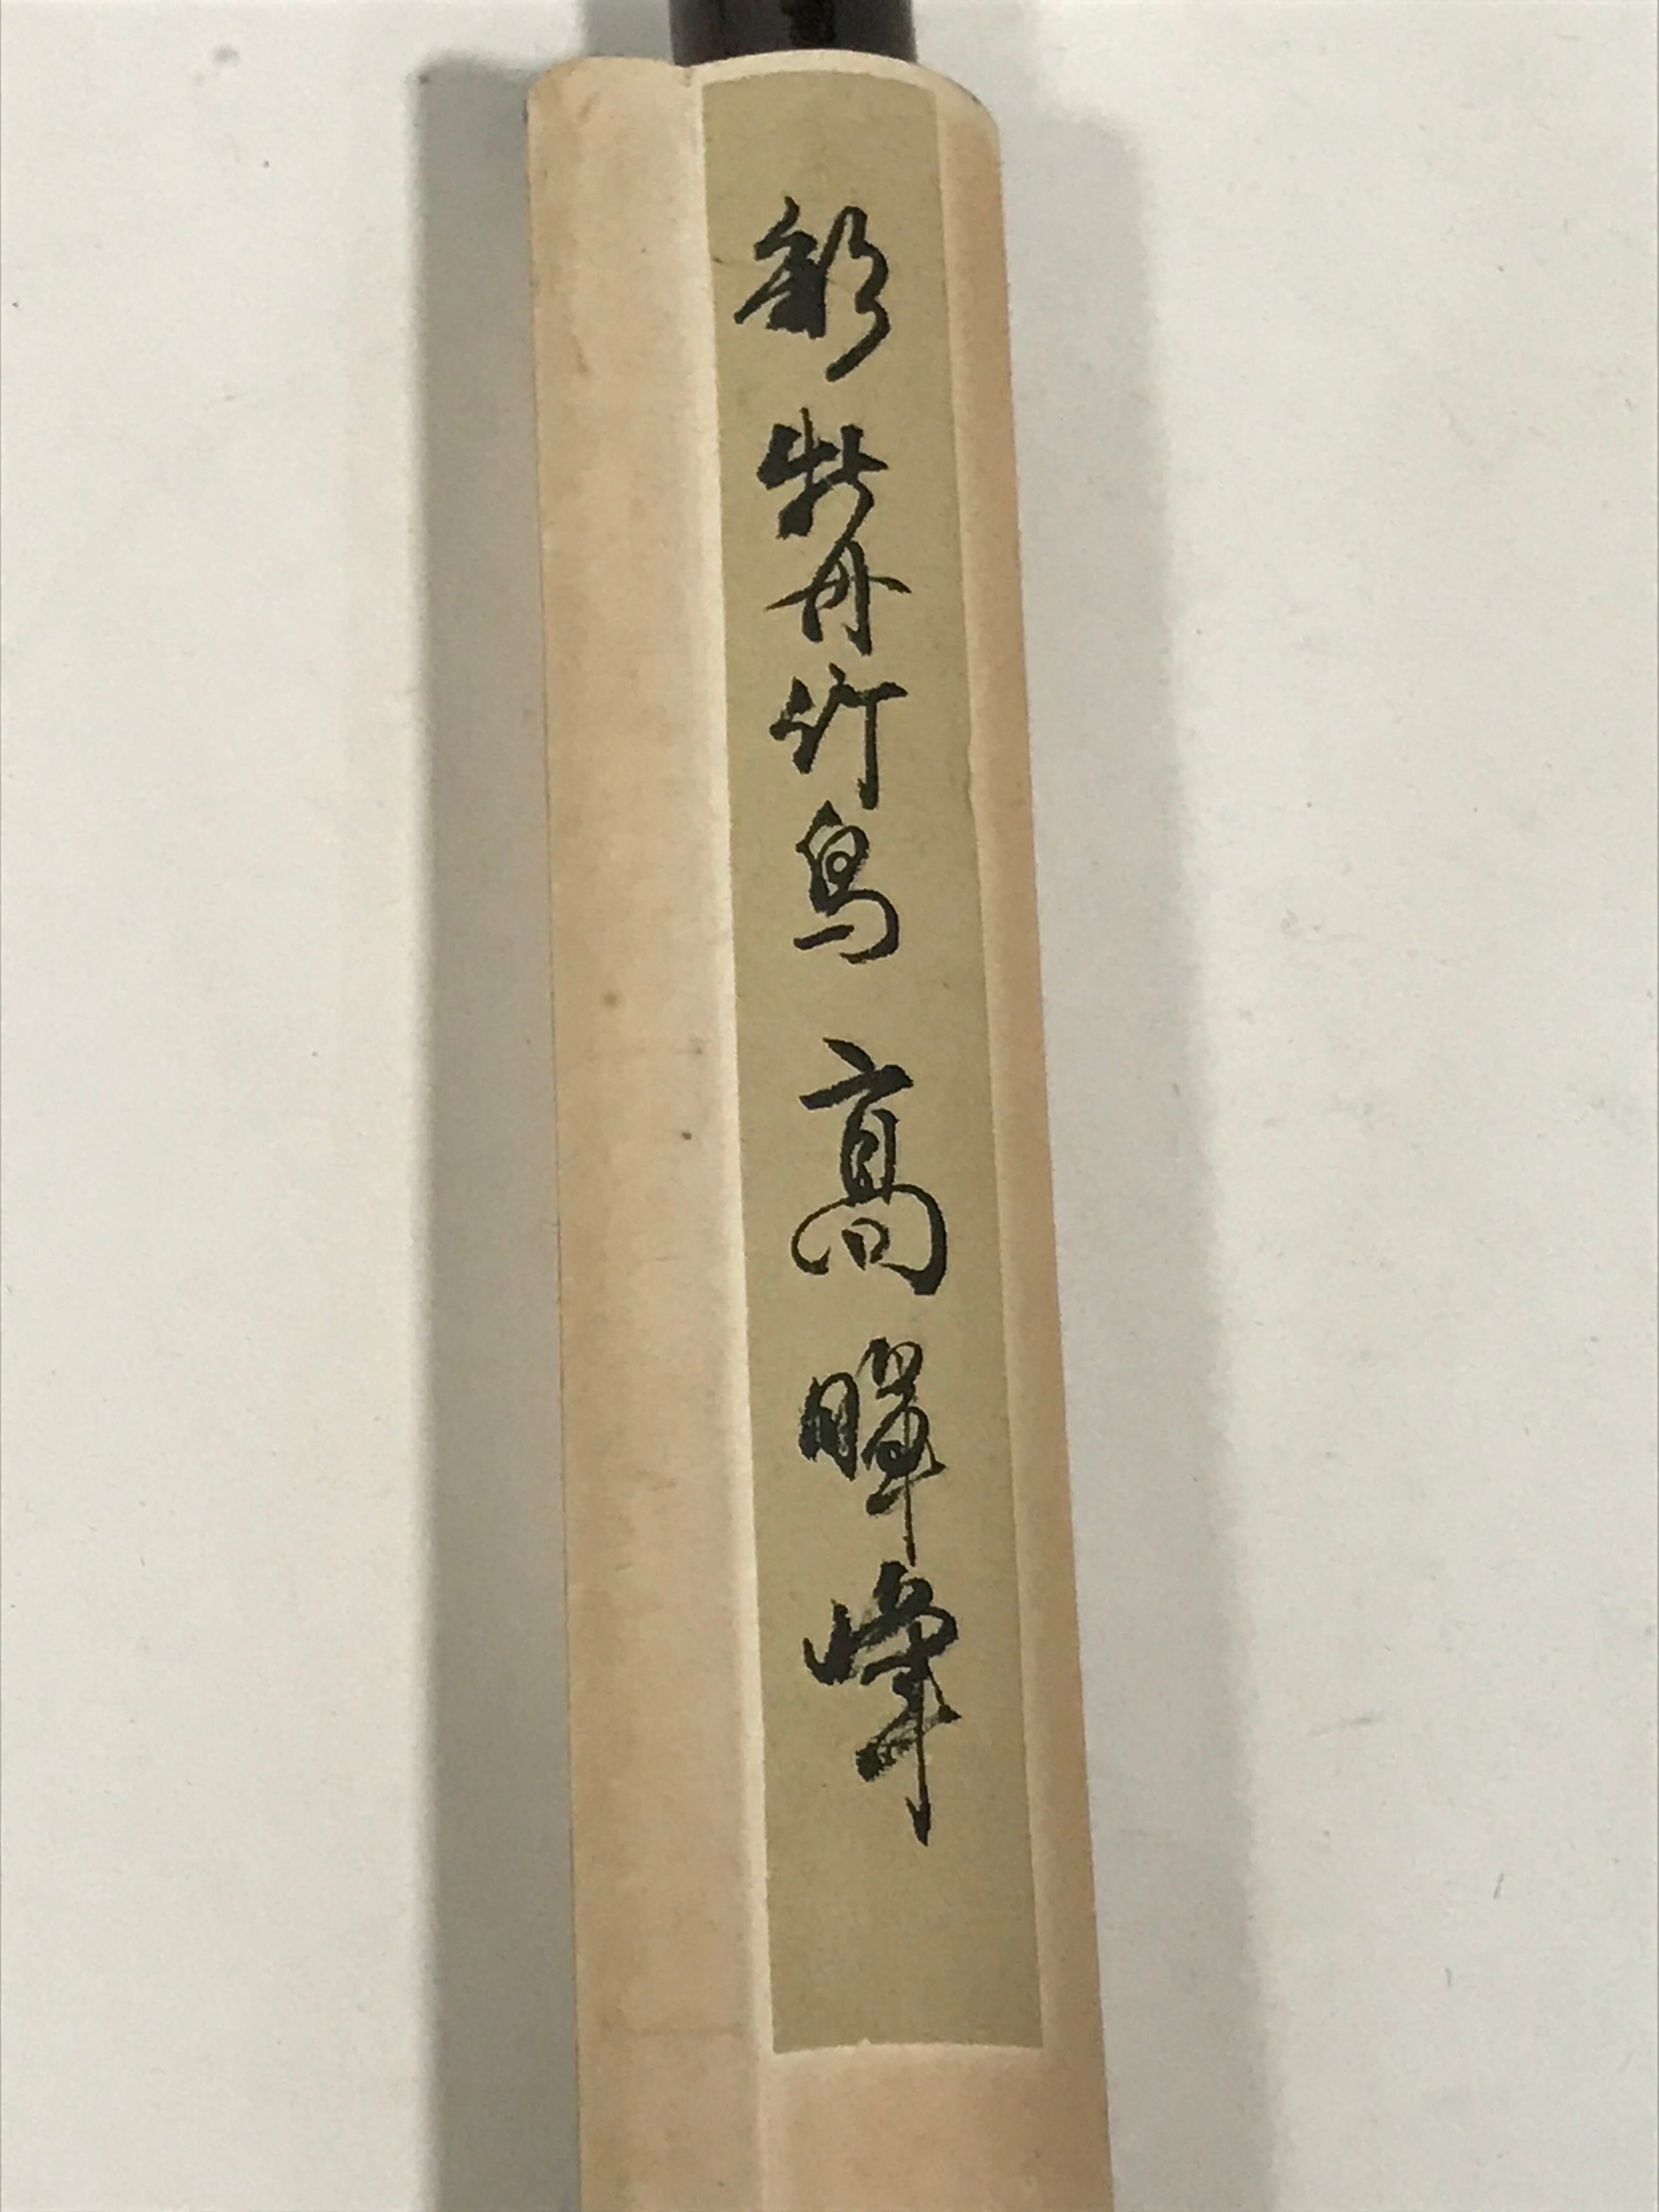 彩牡丹竹鳥 高暉峰